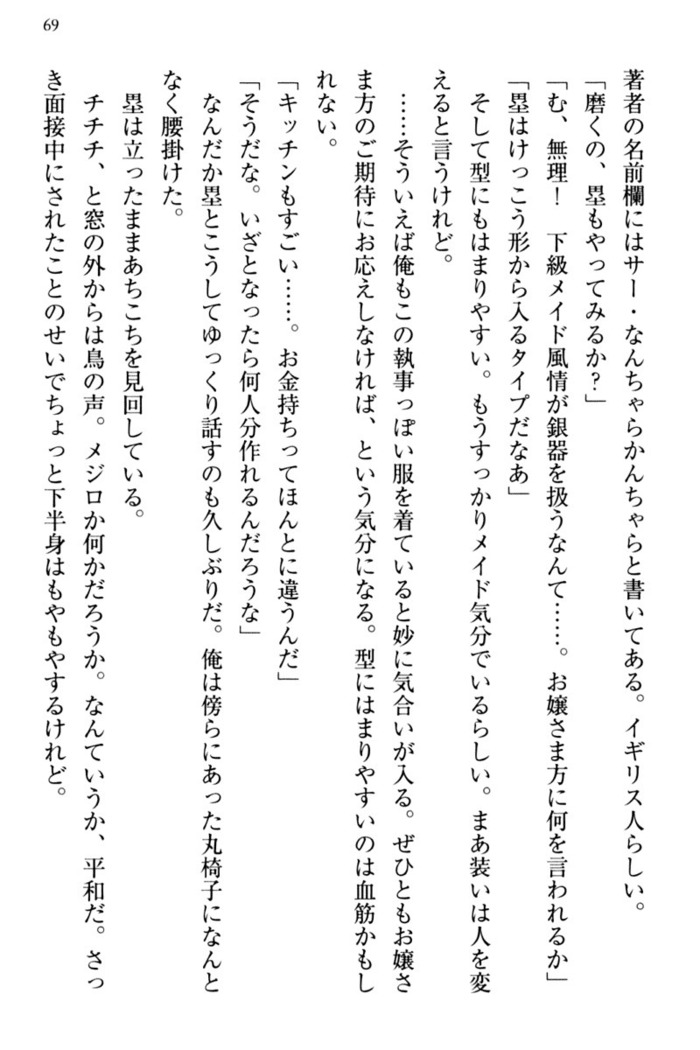 69
著者の名前欄にはサー・なんちゃらかんちゃらと書いてある。イギリス人らしい。
「磨くの、塁もやってみるか？」
「む、無理！　下級メイド風情が銀器を扱うなんて……。お嬢さま方に何を言われるか」
「塁はけっこう形から入るタイプだなあ」
　そして型にもはまりやすい。もうすっかりメイド気分でいるらしい。まあ装いは人を変
えると言うけれど。
　……そういえば俺もこの執事っぽい服を着ていると妙に気合いが入る。ぜひともお嬢さ
ま方のご期待にお応えしなければ、という気分になる。型にはまりやすいのは血筋かもし
れない。
「キッチンもすごい……。お金持ちってほんとに違うんだ」
「そうだな。いざとなったら何人分作れるんだろうな」
　なんだか塁とこうしてゆっくり話すのも久しぶりだ。俺は傍らにあった丸椅子になんと
なく腰掛けた。
　塁は立ったままあちこちを見回している。
　チチチ、と窓の外からは鳥の声。メジロか何かだろうか。なんていうか、平和だ。さっ
き面接中にされたことのせいでちょっと下半身はもやもやするけれど。